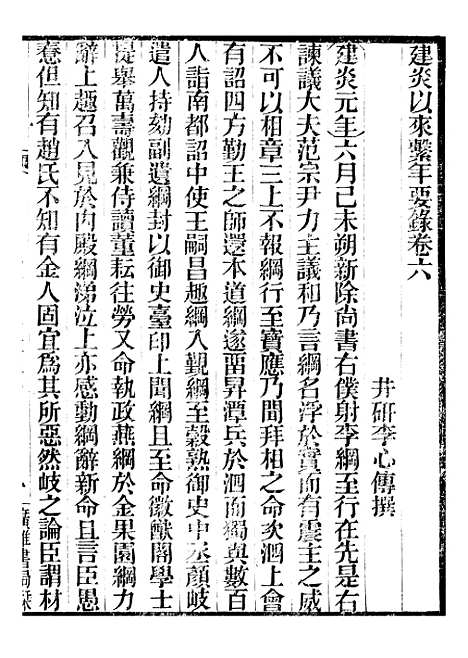 建炎以來繫年要錄卷六
井研李心傳撰
建炎元年六月己未朔新除尚書右僕射李綱至行在先是右
諫議大夫范宗尹力主議和乃言綱名浮於實而有震主之威
不可以相章三上不報綱行至寶應乃聞拜相之命次泗上會
有詔四方勤王之師還本道綱遂留昇潭兵於泗而獨與數百
人詣南都詔中使王嗣昌趣綱入覲綱至穀熟御史中丞顏岐
遣人持劾副遺綱封以御史臺印上聞綱且至命徽猷閣學士
提舉萬壽觀兼侍讀董耘往勞又命執政燕綱於金果園綱力
辭上趣召入見於內殿綱涕泣上亦感動綱辭新命且言臣愚
惷但知有趙氏不知有金人固宜爲其所惡然岐之論臣謂材
廣雅書局栞